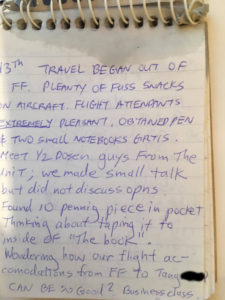 13TH TRAVEL BEGAN OUT OF
FF. PLENTY OF FUSS SNACKS
ON AIRCRAFT. FLIGHT ATTENDANTS
EXTREMELY PLEASANT, OBTAINED PEN
& TWO SMALL NOTEBOOKS GRTIS.
MEET 1/2 DOSEN guys From The
Unit; we made small talk
but did not discuss opns.
Found 10 pennig piece in pocket
Thinking about taping it to
inside of "The book".
Wondering how our flight ac-
comodations from FF to
CAN BE so Good? Business class